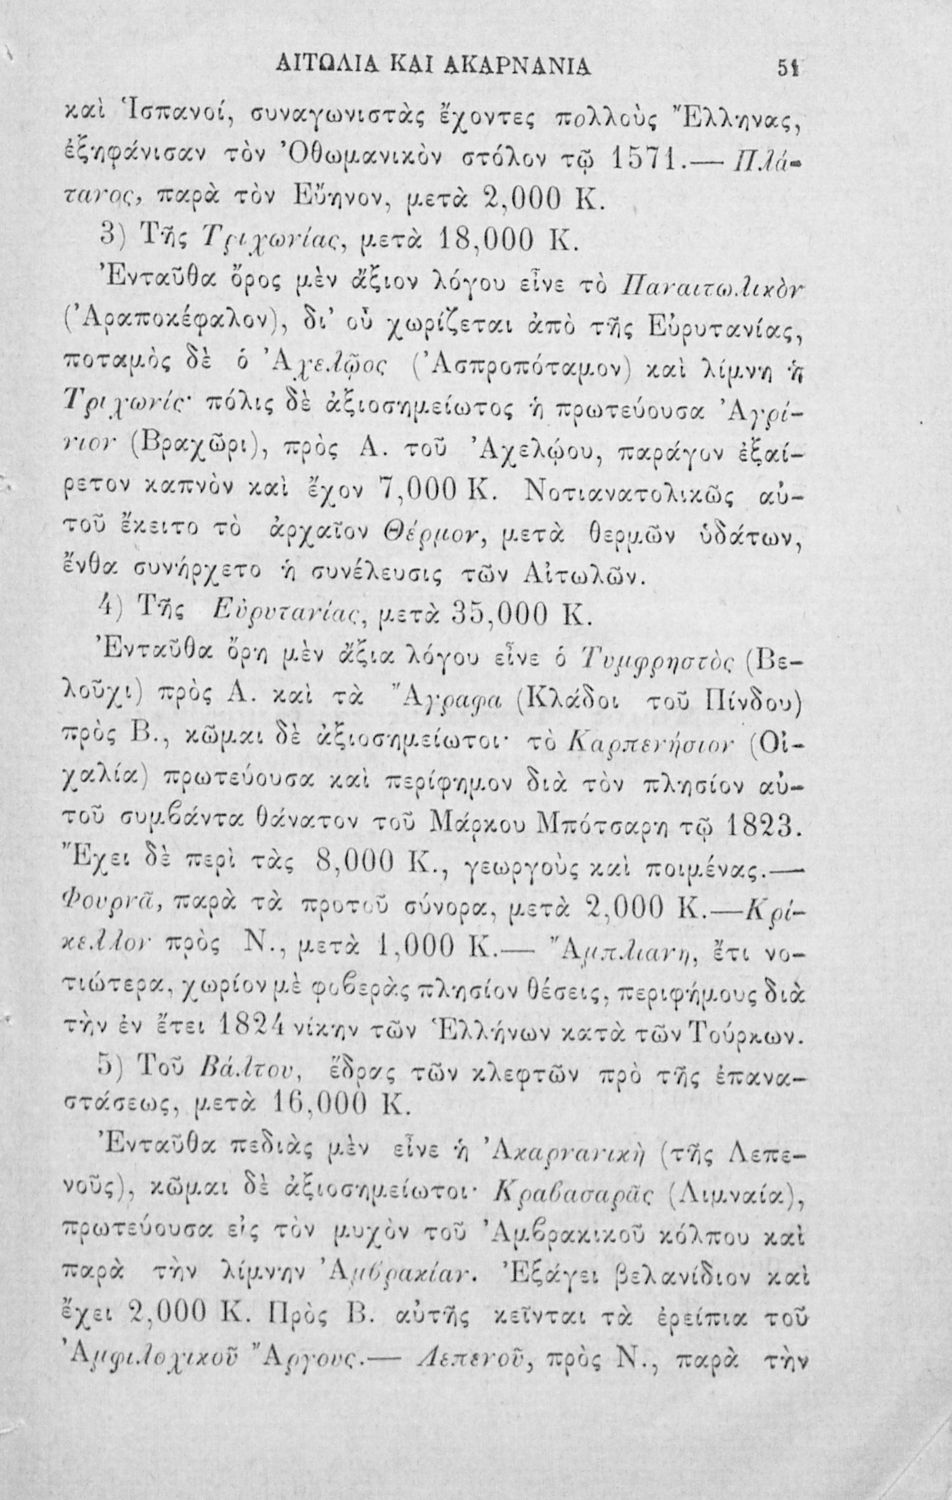 ΑΙΤΩΛΙΑ ΚΑΙ ΑΚΑΡΝΑΝΙΑ 51
καὶ Ἱσπανοί, συναγωνιστὰς ἔχοντες πολλοὺς Ἕλληνας,
ἐξηφάνισαν τὸν Ὀθωμανικὸν στόλον τῷ 1571.— Πλά-
τανος, παρὰ τὸν Εὔηνον, μετὰ 2,000 Κ.
3) Τῆς Τριχωνίας, μετὰ 18,000 Κ.
Ἐνταῦθα ὄρος μὲν ἄξιον λόγου εἶνε τὸ Παναιτωλικὸν
(Ἀραποκέφαλον), δι' οὗ χωρίζεται ἀπὸ τῆς Εὐρυτανίας,
ποταμὸς δὲ ὁ Ἀχελῷος (Ἀσπροπόταμον) καὶ λίμνη ἡ
Τριχωνίς· πόλις δὲ ἀξιοσημείωτος ἡ πρωτεύουσα Ἀγρί-
νιον (Βραχῶρι), πρὸς Α. τοῦ Ἀχελῴου, παράγον ἐξαί-
ρετον καπνὸν καὶ ἔχον 7,000 Κ. Νοτιανατολικῶς αὐ-
τοῦ ἔκειτο τὸ ἀρχαῖον Θέρμον, μετὰ θερμῶν ὑδάτων,
ἔνθα συνήρχετο ἡ συνέλευσις τῶν Αἰτωλῶν.
4) Τῆς Εὐρυτανίας, μετὰ 35,000 Κ.
Ἐνταῦθα ὄρη μὲν ἄξια λόγου εἶνε ὁ Τυμφρηστὸς (Βε-
λοῦχι) πρὸς Α. καὶ τὰ Ἄγραφα (Κλάδοι τοῦ Πίνδου)
πρὸς Β., κῶμαι δὲ ἀξιοσημείωτοι· τὸ Καρπενήσιον (Οἰ-
χαλία) πρωτεύουσα καὶ περίφημον διὰ τὸν πλησίον αὐ-
τοῦ συμβάντα θάνατον τοῦ Μάρκου Μπότσαρη τῷ 1823.
Ἔχει δὲ περὶ τὰς 8,000 Κ., γεωργοὺς καὶ ποιμένας.—
Φουρνᾶ, παρὰ τὰ προτοῦ σύνορα, μετὰ 2,000 Κ.—Κρί-
κελλον πρὸς Ν., μετὰ 1,000 Κ.— Ἄμπλιανη, ἔτι νο-
τιώτερα, χωρίον μὲ φοβερὰς πλησίον θέσεις, περιφήμους διὰ
τὴν ἐν ἔτει 1824 νίκην τῶν Ἑλλήνων κατὰ τῶν Τούρκων.
5) Τοῦ Βάλτου, ἕδρας τῶν κλεφτῶν πρὸ τῆς ἐπανα-
στάσεως, μετὰ 16,000 Κ.
Ἐνταῦθα πεδιὰς μὲν εἶνε ἡ Ἀκαρνανικὴ (τῆς Λεπε-
νοῦς), κῶμαι δὲ ἀξιοσημείωτοι· Κραβασαρᾶς (Λιμναία),
πρωτεύουσα εἰς τὸν μυχὸν τοῦ Ἀμβρακικοῦ κόλπου καὶ
παρὰ τὴν λίμνην Ἀμβρακίαν. Ἐξάγει βελανίδιον καὶ
ἔχει 2,000 Κ. Πρὸς Β. αὐτῆς κεῖνται τὰ ἐρείπια τοῦ
Ἀμφιλοχικοῦ Ἄργους.— Λεπενοῦ, πρὸς Ν., παρὰ τὴν